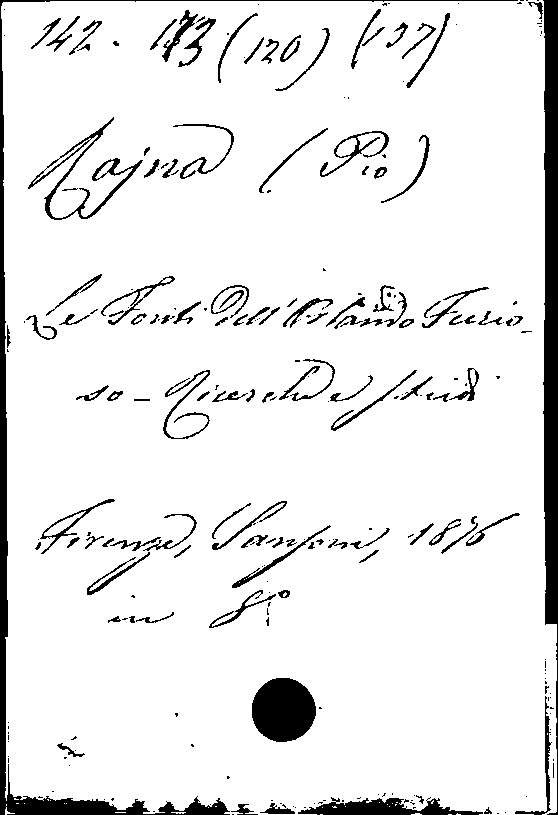 142. 173 (120) (137)
Rajna (Pio)
Le Fonti dell'Orlando Furio-
so - Ricerche e studi
Firenze, Sansoni, 1876
in 8°